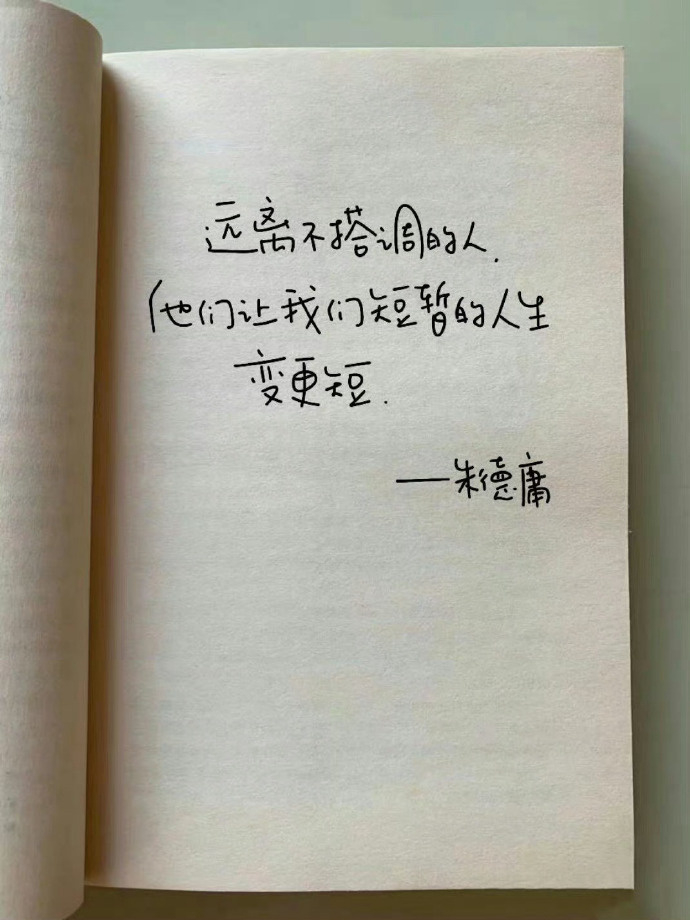 远离不搭调的人.
他们让我们短暂的人生
变更短.
——朱德庸